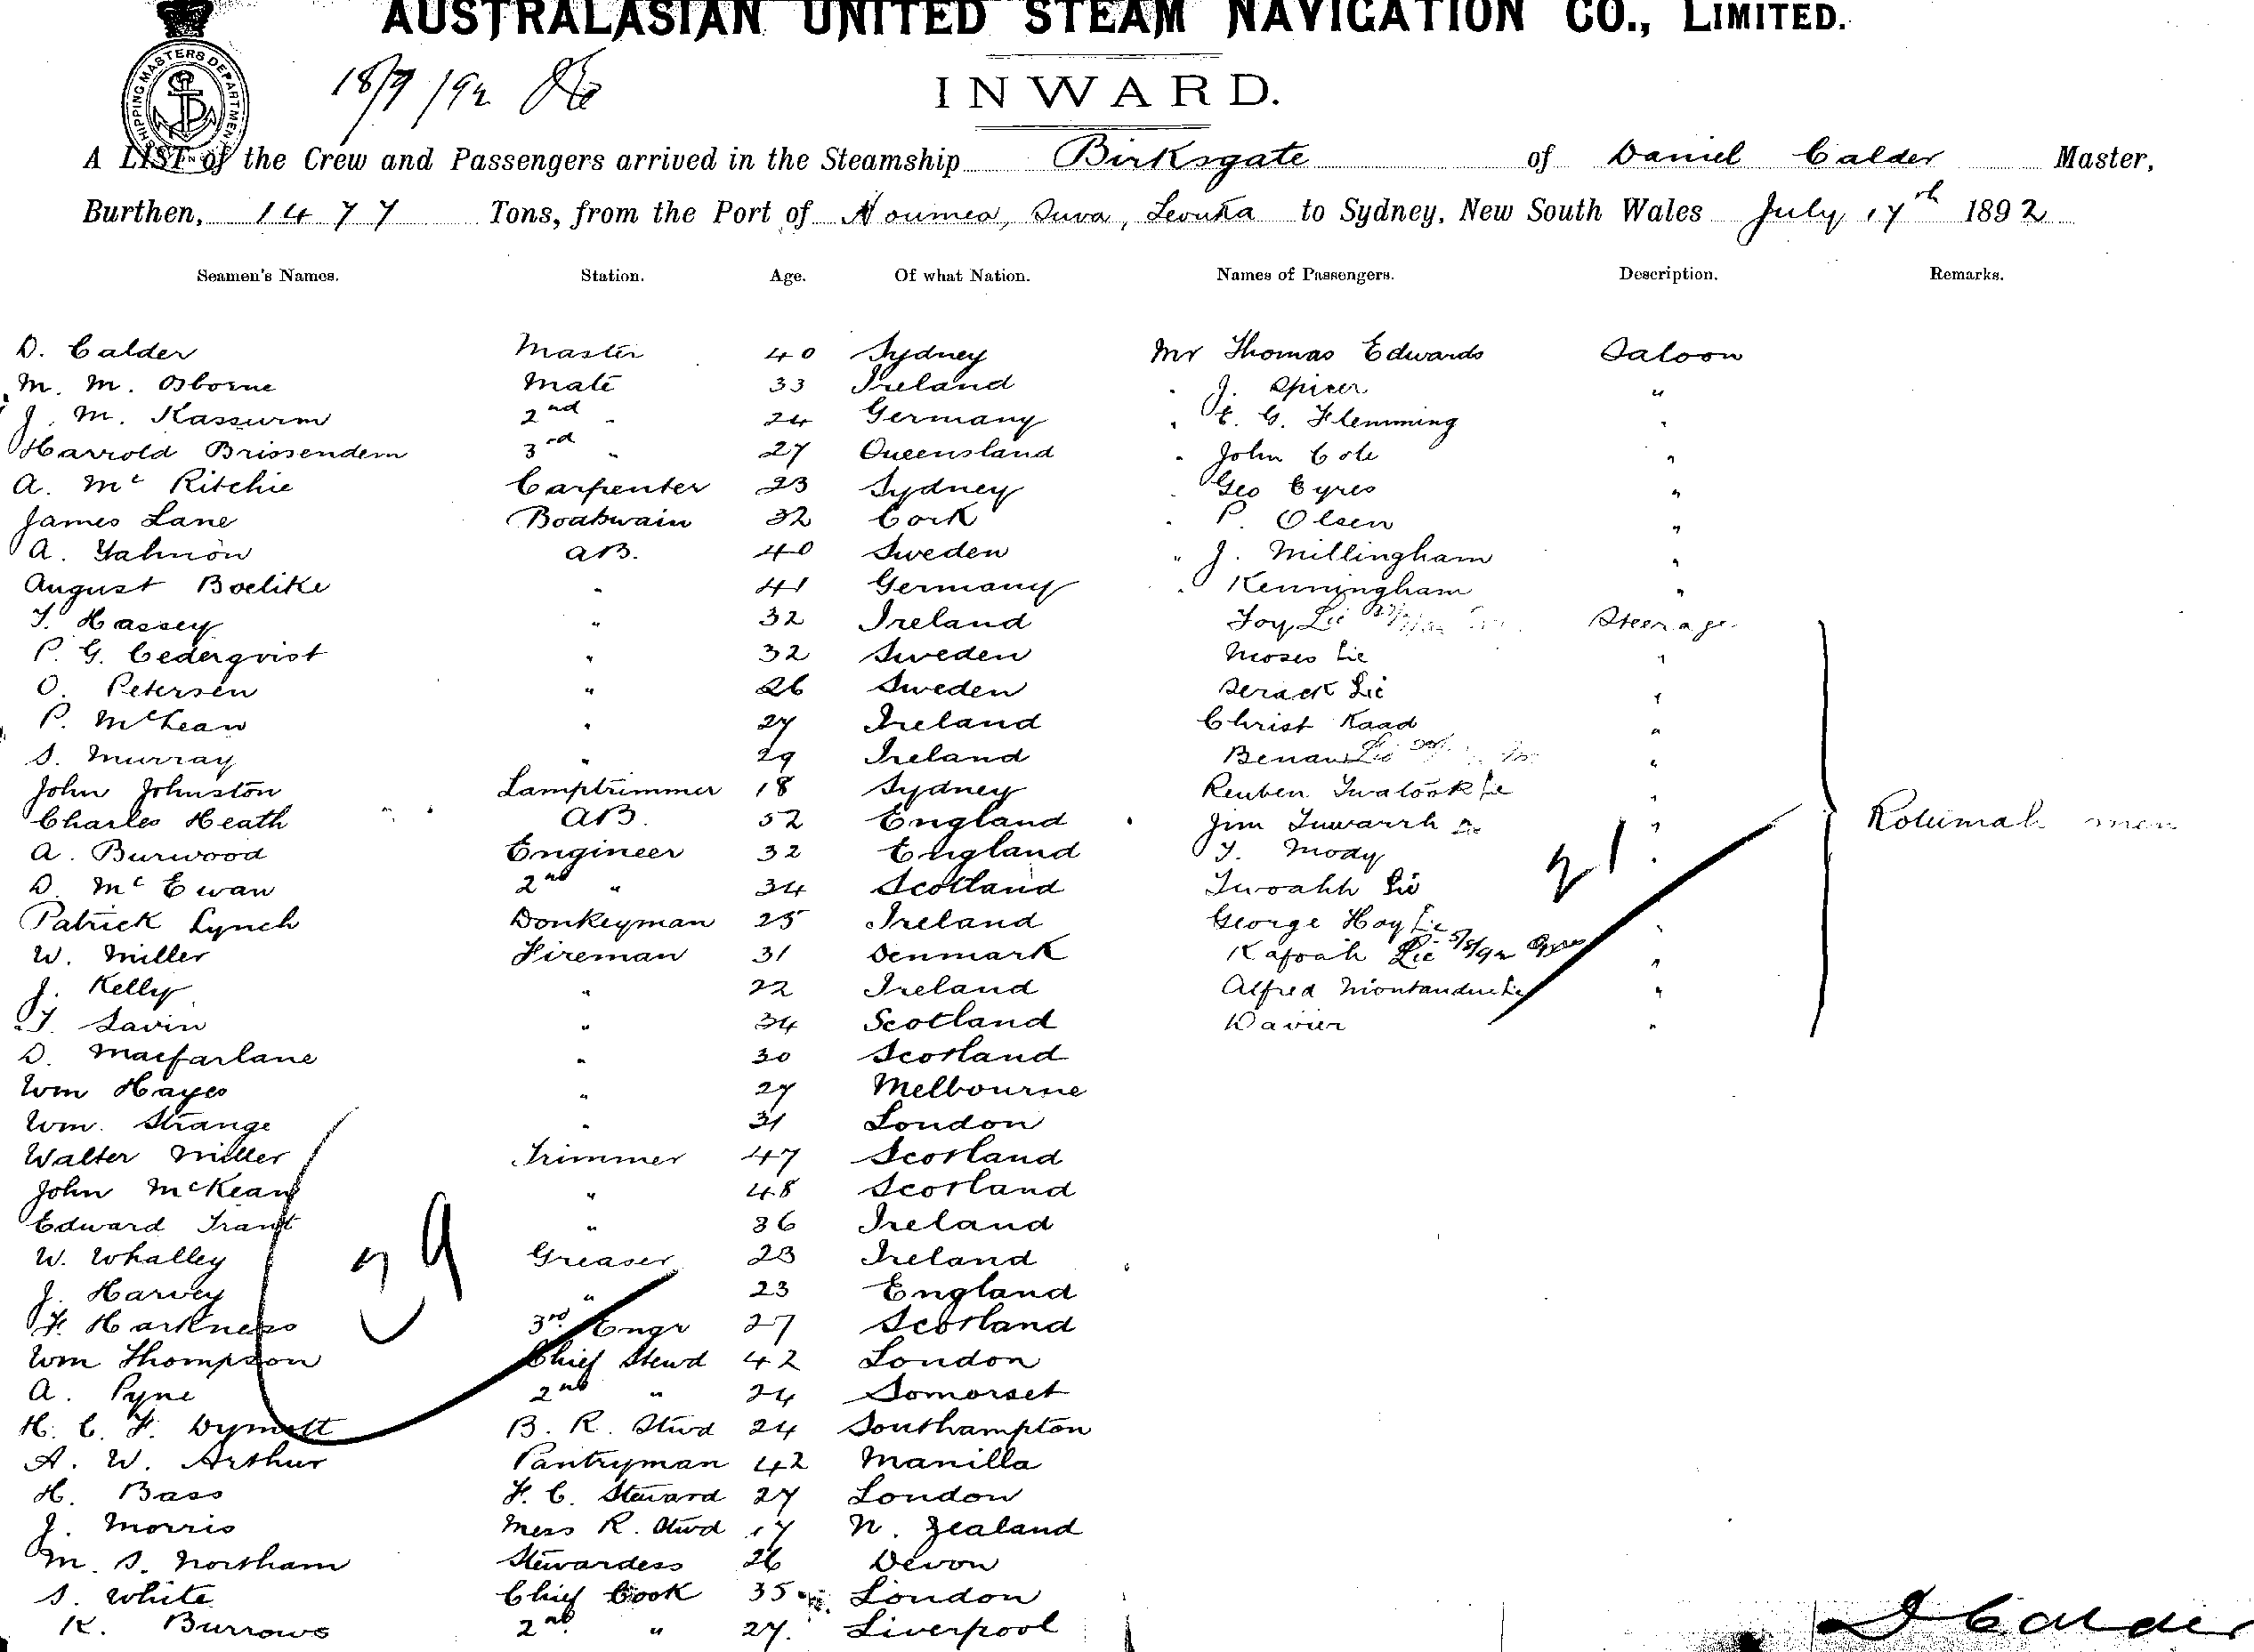 AUSTRALASIAN UNITED STEAM NAVIGATION CO., LIMITED.
SHIPPING MASTERS DEPARTMENT
18/7/92
INWARD.
A LIST of the Crew and Passengers arrived in the Steamship Birksgate of Daniel Calder Master,
Burthen, 1477 Tons, from the Port of Noumea, Suva, Levuka to Sydney, New South Wales July 17th 1892
Seamen's Names. Station. Age. Of what Nation. Names of Passengers. Description. Remarks.
D. Calder Master 40 Sydney Mr Thomas Edwards Saloon
M. M. Osborne Mate 33 Ireland " J. Spicer "
J. M. Kassurm 2nd " 24 Germany " E. G. Flemming "
Harrold Brissendem 3rd " 27 Queensland " John Cole "
A. Mc Ritchie Carpenter 23 Sydney " Geo Eyres "
James Lane Boatswain 32 Cork " P. Olsen "
A. Yalmon AB. 40 Sweden " J. Millingham "
August Boelike " 41 Germany " Kenningham "
T. Hassey " 32 Ireland Foy Lic Steerage
P. G. Cederqvist " 32 Sweden Moses Lic "
O. Petersen " 26 Sweden Serack Lic "
P. McLean " 27 Ireland Christ Kaad "
S. Murray " 29 Ireland Benau Lic "
John Johnston Lamptrimmer 18 Sydney Reuben Twalook Lic "
Charles Heath AB. 52 England Jim Tuwarrh Lic " Rotumah men
A. Burwood Engineer 32 England T. Mody " 21
D. Mc Ewan 2nd " 34 Scotland Twoahh Lic
Patrick Lynch Donkeyman 25 Ireland George Hoy Lic "
W. Miller Fireman 31 Denmark Kafoah Lic 5/8/92 "
J. Kelly " 22 Ireland Alfred Lic "
T. Savin " 34 Scotland Davier "
D. Macfarlane " 30 Scotland
Wm Hayes " 27 Melbourne
Wm. Strange " 31 London
Walter Miller Trimmer 47 Scotland
John McKean " 48 Scotland
Edward Trant " 36 Ireland
W. Whalley Greaser 23 Ireland
J. Harvey " 23 England
F. Harkness 3rd Engr 27 Scotland
Wm Thompson Chief Stewd 42 London
A. Pyne 2nd " 24 Somerset
H. C. F. Dymott B. R. Stwd 24 Southampton
A. W. Arthur Pantryman 42 Manilla
H. Bass F. C. Steward 27 London
J. Morris Mess R. Stwd 17 N. Zealand
M. S. Northam Stewardess 26 Devon
S. White Chief Cook 35 London
K. Burrows 2nd " 27. Liverpool
D Calder